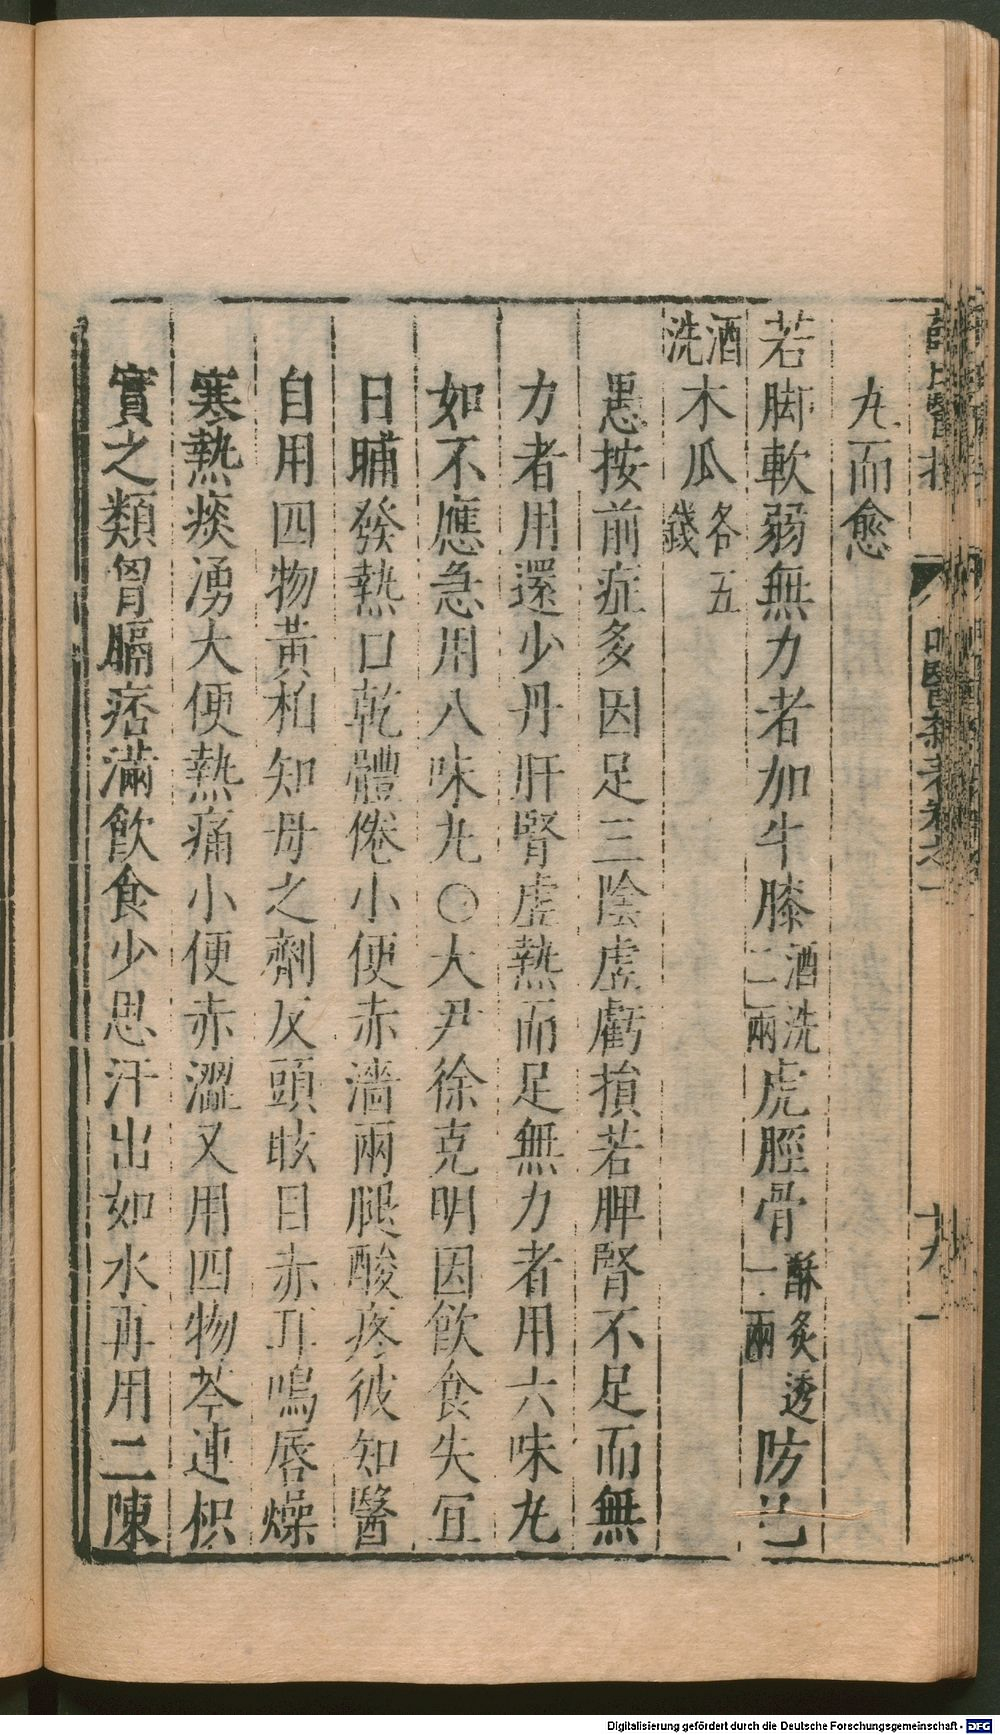 丸而愈
若脚軟弱無力者加牛膝酒洗二兩虎脛骨酥炙透一兩防已
酒洗木瓜各五錢
愚按前症多因足三陰虛虧損若脾腎不足而無
力者用還少丹肝腎虛熱而足無力者用六味丸
如不應急用八味丸〇大尹徐克明因飲食失宜
日晡發熱口乾體倦小便赤濇兩腿酸疼彼知醫
自用四物黃柏知母之劑反頭眩目赤耳鳴唇燥
寒熱痰湧大便熱痛小便赤澀又用四物芩連枳
實之類胷膈痞滿飲食少思汗出如水再用二陳
Digitalisierung gefördert durch die Deutsche Forschungsgemeinschaft - DFG